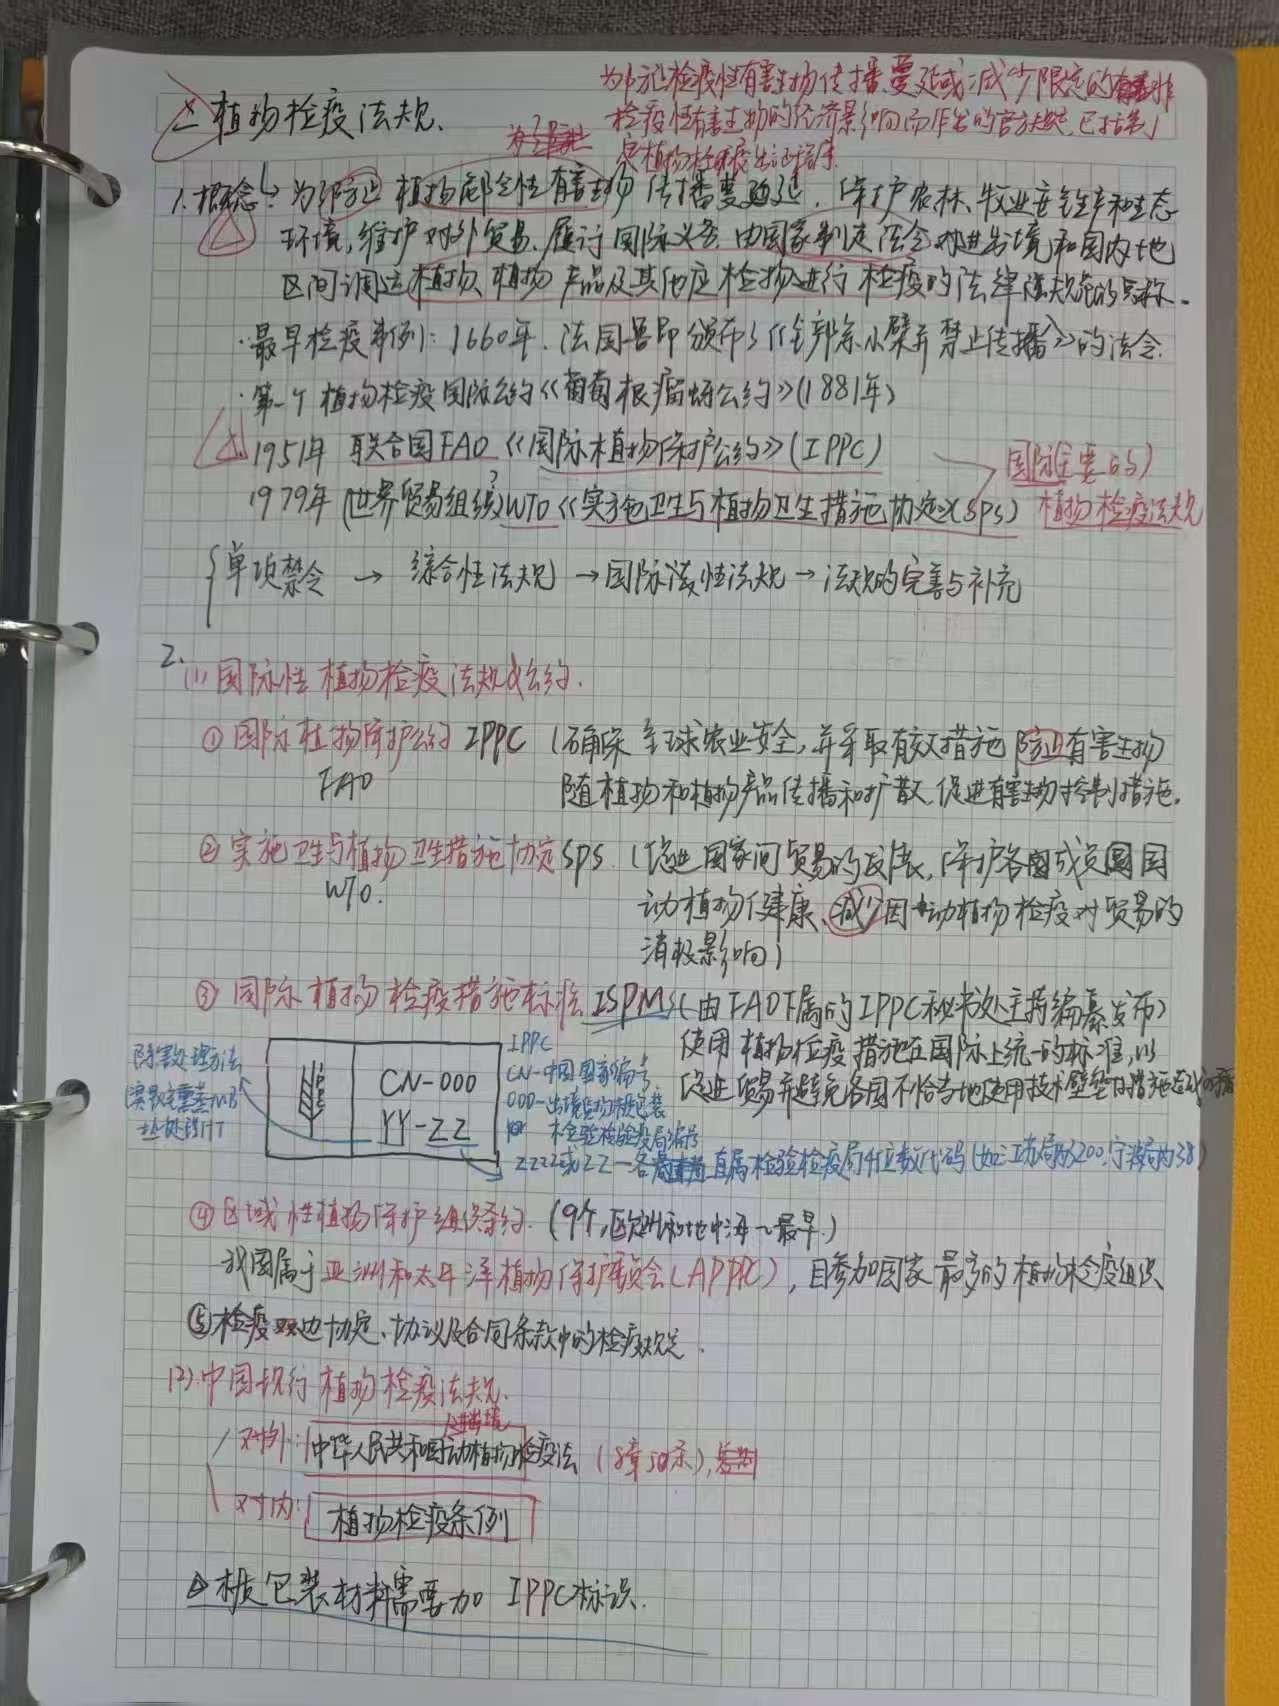 为防止检疫性有害生物传播、蔓延或减少限定的非
检疫性有害生物的经济影响而作出的官方
植物检疫出证程序.
二植物检疫法规.
1.概念: 为防止植物危险性有害生物传播蔓延, 保护农林、牧业安全生产和生态
环境, 维护对外贸易、履行国际义务, 由国家制定法令对进出境和国内地
区间调运植物、植物产品及其他应检物进行检疫的法律法规的总称.
·最早检疫事例: 1660年. 法国鲁昂颁布了《铲除小檗并禁止传播》的法令.
·第一个植物检疫国际公约《葡萄根瘤蚜公约》(1881年)
1951年 联合国FAO《国际植物保护公约》(IPPC)
国际(主要的)
1979年 (世界贸易组织)WTO《实施卫生与植物卫生措施协定》(SPS)
植物检疫法规
单项禁令 → 综合性法规 → 国际性法规 → 法规的完善与补充
2.
(1)国际性植物检疫法规或公约.
①国际植物保护公约 IPPC (确保全球农业安全, 并采取有效措施防止有害生物
FAO
随植物和植物产品传播和扩散, 促进有害生物控制措施.
②实施卫生与植物卫生措施协定SPS. (促进国家间贸易的发展, 保护各成员国
WTO.
动植物健康、减少因动植物检疫对贸易的
消极影响)
③国际植物检疫措施标准 ISPMs(由FAO下属的IPPC秘书处主持编纂发布)
使用植物检疫措施在国际上统一的标准, 以
促进贸易并避免各国不恰当地使用技术壁垒
除害处理方法
溴甲烷熏蒸MB
热处理HT
IPPC
CN-000
YY-ZZ
IPPC
CN-中国国家编号
000-出境货物木质包装
检验检疫局编号
ZZZZ或ZZ-各直属检验检疫局4位数代码(如:江苏局为3200, 宁波局为38)
④区域性植物保护组织条约. (9个, 欧洲和地中海~最早.)
我国属于亚洲和太平洋植物保护委员会(APPPC), 目参加国家最多的植物检疫组织
⑤检疫双边协定、协议及合同条款中的检疫规定.
(2).中国现行植物检疫法规.
进出境
对外: 中华人民共和国动植物检疫法 (8章50条),
对内: 植物检疫条例
木质包装材料需要加 IPPC标识.